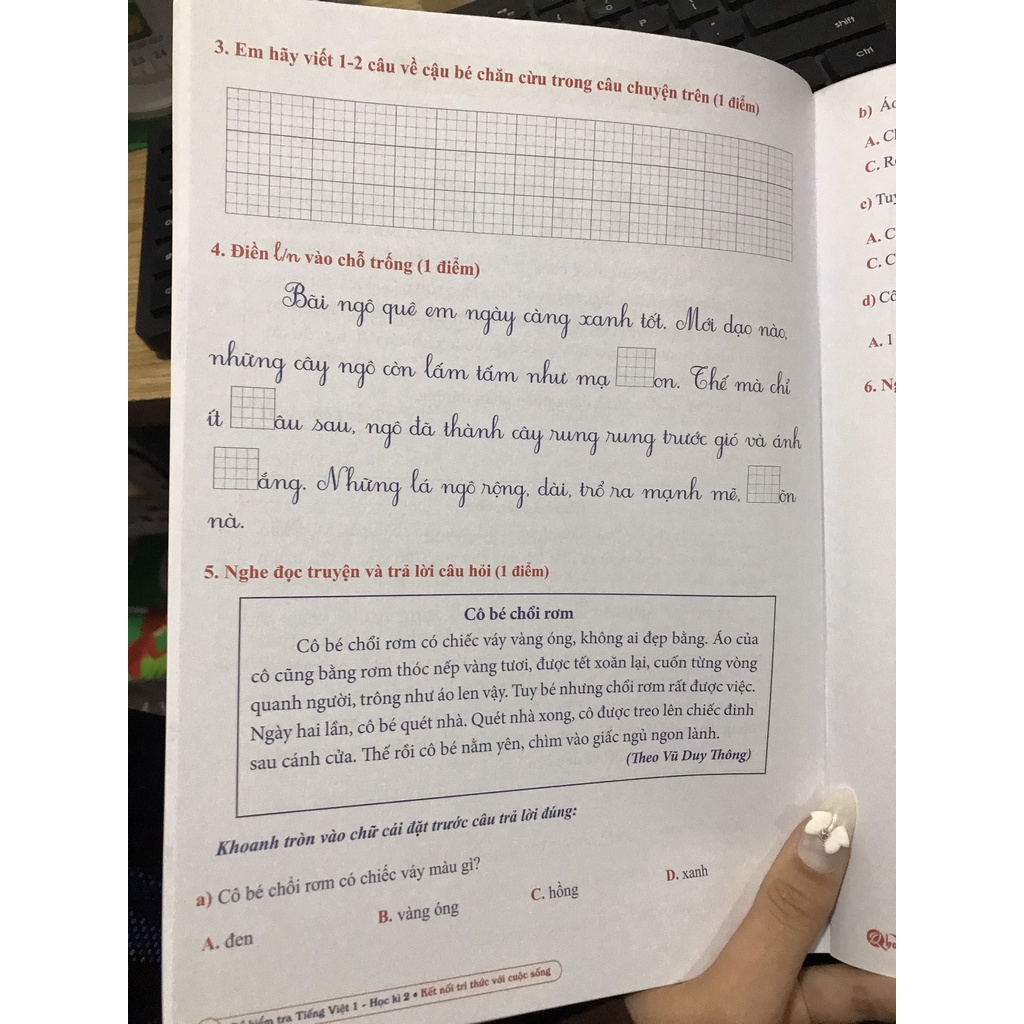 3. Em hãy viết 1-2 câu về cậu bé chăn cừu trong câu chuyện trên (1 điểm)
4. Điền l/n vào chỗ trống (1 điểm)
Bãi ngô quê em ngày càng xanh tốt. Mới dạo nào,
những cây ngô còn lấm tấm như mạ on. Thế mà chỉ
ít âu sau, ngô đã thành cây rung rung trước gió và ánh
ắng. Những lá ngô rộng, dài, trổ ra mạnh mẽ, õn
nà.
5. Nghe đọc truyện và trả lời câu hỏi (1 điểm)
Cô bé chổi rơm
Cô bé chổi rơm có chiếc váy vàng óng, không ai đẹp bằng. Áo của
cô cũng bằng rơm thóc nếp vàng tươi, được tết xoăn lại, cuốn từng vòng
quanh người, trông như áo len vậy. Tuy bé nhưng chổi rơm rất được việc.
Ngày hai lần, cô bé quét nhà. Quét nhà xong, cô được treo lên chiếc đinh
sau cánh cửa. Thế rồi cô bé nằm yên, chìm vào giấc ngủ ngon lành.
(Theo Vũ Duy Thông)
Khoanh tròn vào chữ cái đặt trước câu trả lời đúng:
a) Cô bé chổi rơm có chiếc váy màu gì?
A. đen
B. vàng óng
C. hồng
D. xanh
tra Tiếng Việt 1 - Học kì 2 • Kết nối tri thức với cuộc sống
b)
A.
C.
c)
A. C
C. C
d)
A. 1
6.
shift
ctrl
P